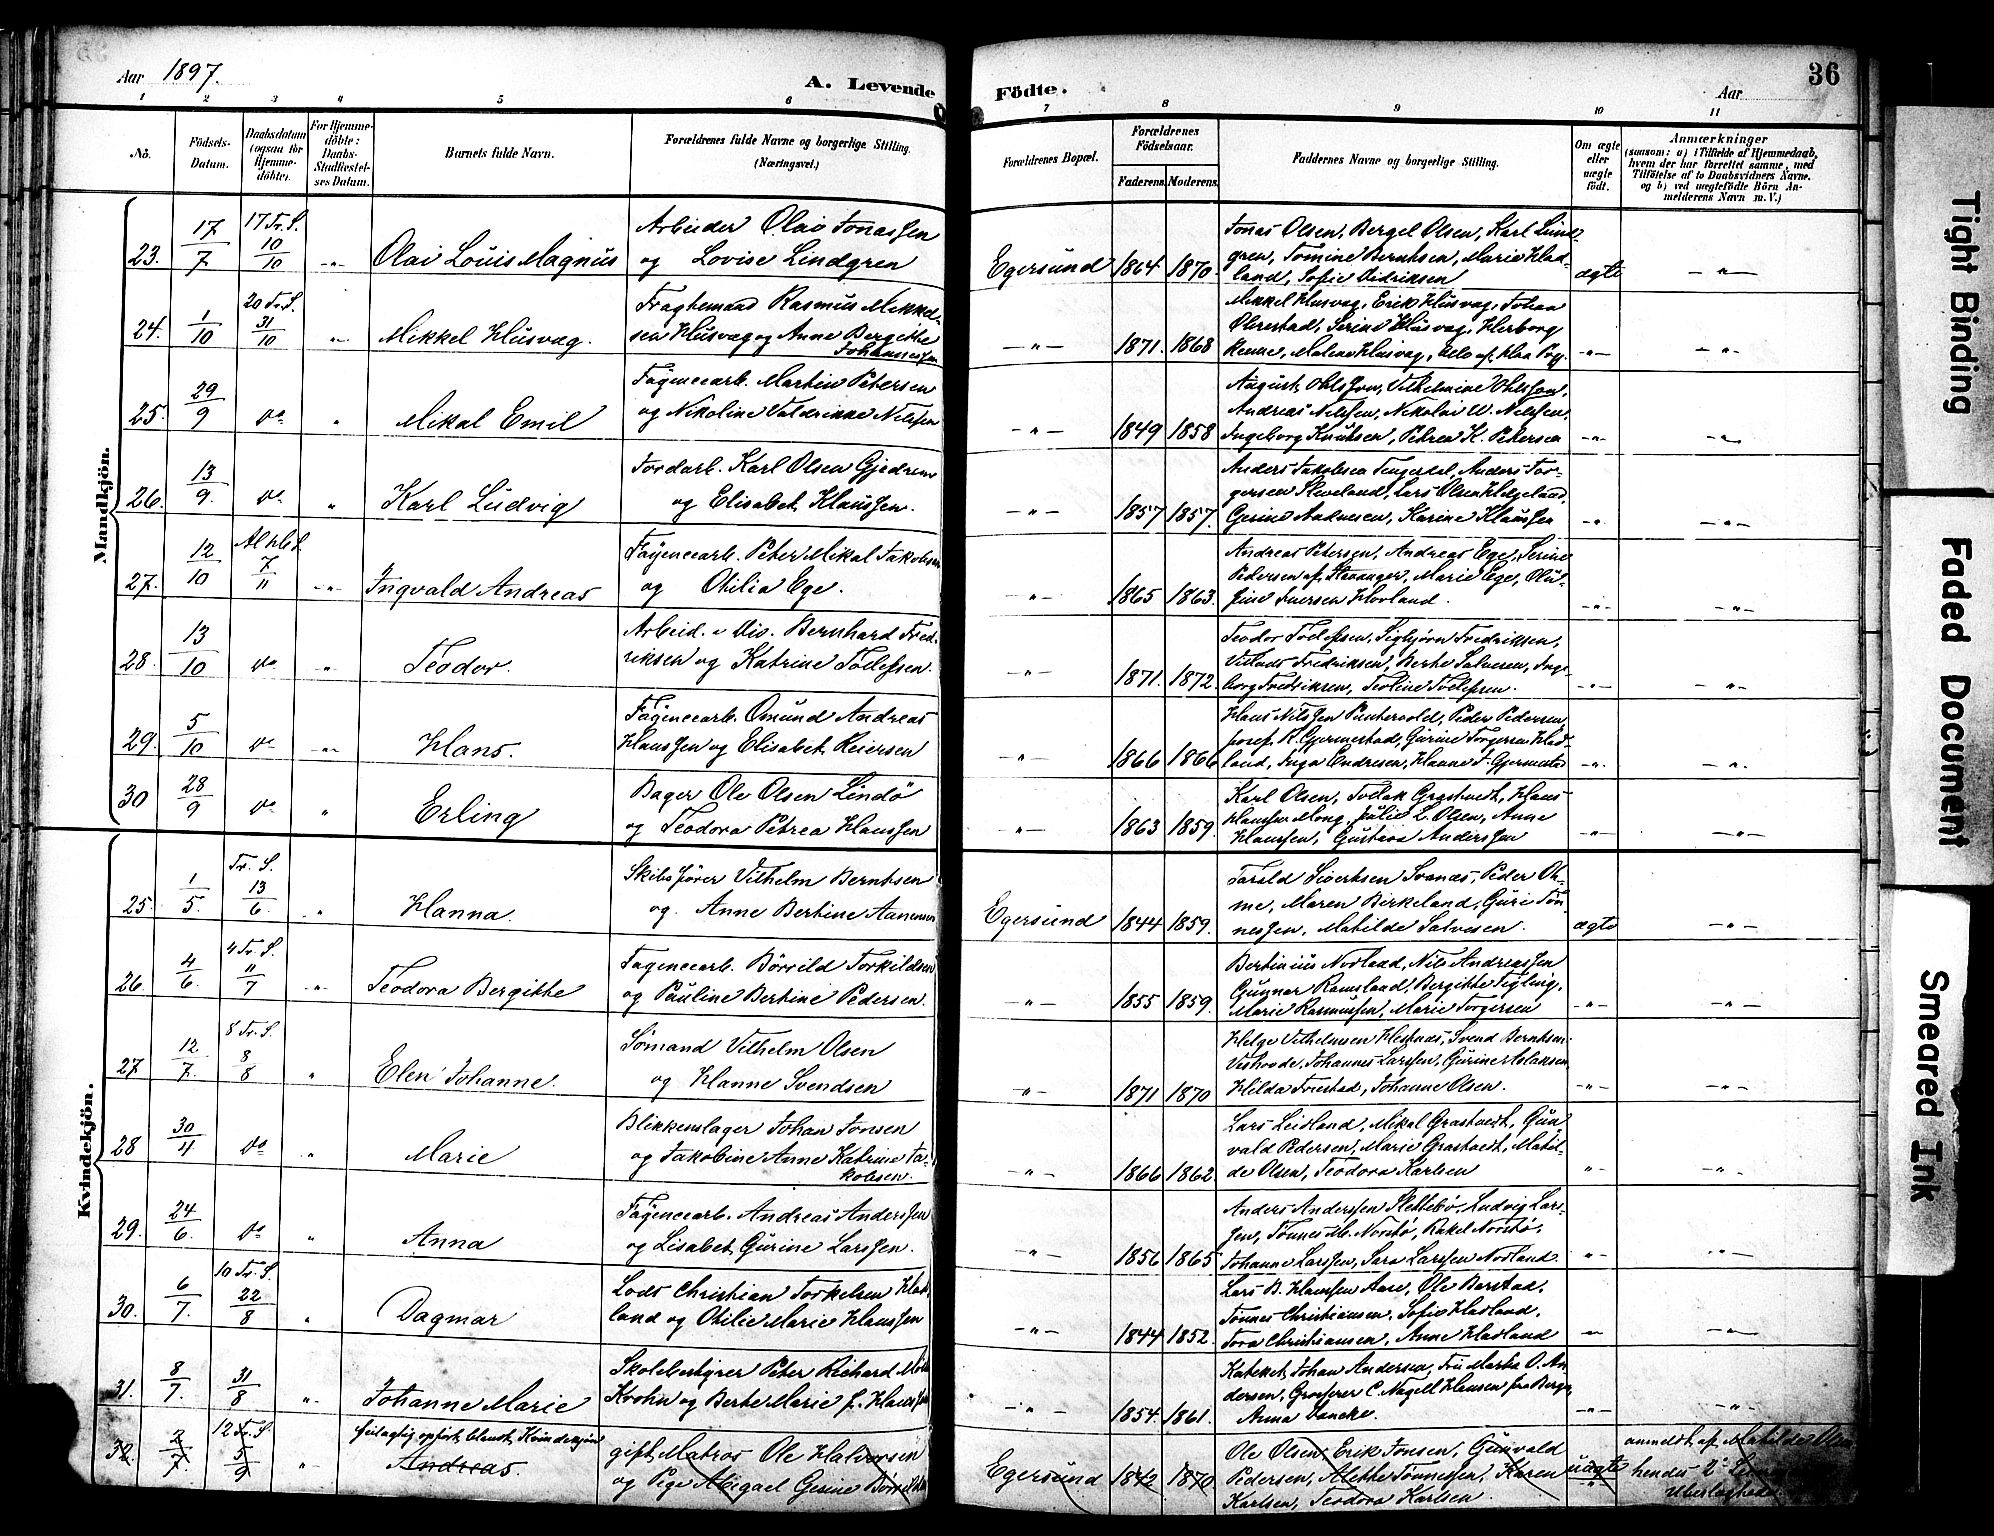 Aar 1897.
A. Levende Födte.
Aar
36
1 2 3 4 5 6 7 8 9 10 11
No.
Födsels-
Datum.
Daabsdatum
(ogsaa for
Hjemme-
döbte).
For Hjemme-
döbte:
Daabs-
Stadfæstel-
ses Datum.
Barnets fulde Navn.
Forældrenes fulde Navne og borgerlige Stilling.
(Næringsvei.)
Forældrenes Bopæl.
Forældrenes
Födselsaar.
Faderens. Moderens.
Faddernes Navne og borgerlige Stilling.
Om ægte
eller
uægte
födt.
Anmærkninger
(saasom: a) i Tilfælde af Hjemmedaab,
hvem der har forrettet samme, med
Tilföielse af to Daabsvidners Navne,
og b) ved uægtefödte Börn An-
melderens Navn m. V.)
Mandkjön.
23. 17/7 17 Tr. S. 10/10 -"- Olai Louis Magnus
Arbeider Olai Jonassen
og Lovise Lindgren
Egersund 1864 1870
Jonas Olsen, Bergel Olsen, Karl Lind-
gren, Tomine Berntsen, Marie Had-
land, Sofie Didriksen
ægte -"-
24. 1/10 20 Tr. S. 31/10 " Mikkel Husvæg.
Fragtemand Rasmus Mikkel-
sen Husvæg og Anne Bergitte
Johannessen
-"- 1871. 1868
Mikkel Husvæg, Erik Husvæg, Johan
Ohrestad, Serine Husvæg, Herborg
Malene Husvæg,
-"- -"-
25. 29/9 do " Mikal Emil
Fayencearb. Martin Petersen
og Nikoline Nilssen
-"- 1849 1858
August Ohlsson, Vilhelmine Ohlsson,
Andreas Nilssen, Nikolai W. Nilssen,
Ingeborg Knutsen, Petrea K. Petersen
-"- -"-
26. 13/9. do " Karl Ludvig
Jordarb. Karl Olsen Gjedrem
og Elisabet Klaussen.
-"- 1857 1857.
Anders Jakobsen Tengesdal, Anders Tor-
gersen Sleveland, Lars Olsen Helgeland,
Gurine Andresen, Karine Klaussen
-"- -"-
27. 12/10 7/11 -"- Ingvald Andreas
Fayencearb. Peter Mikal Jakobsen
og Otilia Ege.
-"- 1865 1863.
Andreas Petersen, Andreas Ege, Serine
Pedersen af Stavanger, Marie Ege, Olu-
fine Iversen Hovland.
-"- -"-
28. 13/10 do " Teodor.
Arbeid. v Div. Bernhard Fred-
riksen og Katrine Tollefsen.
-"- 1871. 1872.
Teodor Tollefsen, Sigbjørn Fredriksen,
Fredriksen, Berte Salvesen, Inge-
borg Fredriksen, Teoline Tollefsen.
-"- -"-
29. 5/10 do -"- Hans.
Fayencearb. Omund Andreas
Hanssen og Elisabet Reiersen
-"- 1866 1866
Hans Nilssen Puntervold, Peder Pedersen,
Josef K. Gjermestad, Gurine Torgersen Had-
land, Inga Endresen, Hanne T. Gjermestad
-"- -"-
30 28/9 do " Erling
Bager Ole Olsen Lindö
og Teodora Petrea Hanssen
-"- 1863 1859.
Karl Olsen, Tollak Grastvedt, Hans
Hanssen Mong, Julie L. Olsen, Anne
Hanssen, Gustava Anderssen
-"- -"-
Kvindekjön.
25. 1/5. Tr. S. 13/6. " Hanna.
Skibsfører Vilhelm Berntsen
og Anne Bertine Aanensen
Egersund 1844 1859.
Torald Sivertsen Svanæs, Peder Oh-
me, Maren Birkeland, Guri Tøn-
nessen, Matilde Salvesen.
ægte -"-
26. 4/6. 4 Tr. S. 11/7 -"- Teodora Bergitte
Fayencearb. Börrild Torkildsen
og Pauline Bertine Pedersen.
-"- 1855 1859.
Bertinius Norland, Nils Andreassen
Gunnar Ramsland, Bergitte Tigling,
Marie Rasmussen, Marie Torgersen
-"- -"-
27 12/7. 8 Tr. S. 8/8 " Elen Johanne.
Sømand Vilhelm Olsen
og Hanne Svendsen
-"- 1871 1870
Helge Vilhelmsen Hestnæs, Svend Berntsen
Veshovde, Johannes Larssen, Gurine Aslaksen
Hilda Frøstad, Johanne Olsen.
-"- -"-
28 30/4. do " Marie
Blikkenslager Johan Jonsen
og Jakobine Anne Katrine Ja-
kobsen.
-"- 1866 1862.
Lars Leidland, Mikal Grastvedt, Gun-
vald Pedersen, Marie Grastvedt, Matil-
de Olsen, Teodora Karlsen
" -"-
29. 24/6. do " Anna
Fayencearb. Andreas Anderssen
og Lisabet Gurine Larssen.
-"- 1856 1865
Anders Anderssen Slettebø, Ludvig Lars-
sen, Tønnes M. Norstø, Rakel Norstø,
Johanne Larssen, Sara Larssen Norland.
-"- "-
30. 6/7. 10 Tr. S. 22/8 " Dagmar
Lods Christian Torkelsen Had-
land og Otilie Marie Hanssen
-"- 1844 1852.
Lars B. Hanssen Aase, Ole Barstad,
Tønnes Christiansen, Sofie Hadland,
Tora Christiansen, Anne Hadland
-"- -"-
31. 8/7. 31/8 " Johanne Marie
Skolebestyrer Peter Richard
Krohn og Berte Marie f. Hanssen
-"- 1854. 1861.
Kateket Johan Andersen, Fru Marta O. An-
dersen, Grosserer C. Nagell Hansen fra Bergen,
Anna Vancke.
-"- -"-
32. 2/7. 12 Tr. S. 5/9 "
feilagtig opført blandt Kvindekjøn
Andreas.
gift Matros Ole Halvorsen
og Pige Abigael Gesine
Egersund 1842 1870
Ole Olsen, Erik Jonsen, Gunvald
Pedersen, Alette Tønnessen, Karen
Karlsen, Teodora Karlsen.
uægte
anmeldt af Matilde Olsen
hendes 2
Tight Binding
Faded Document
Smeared Ink